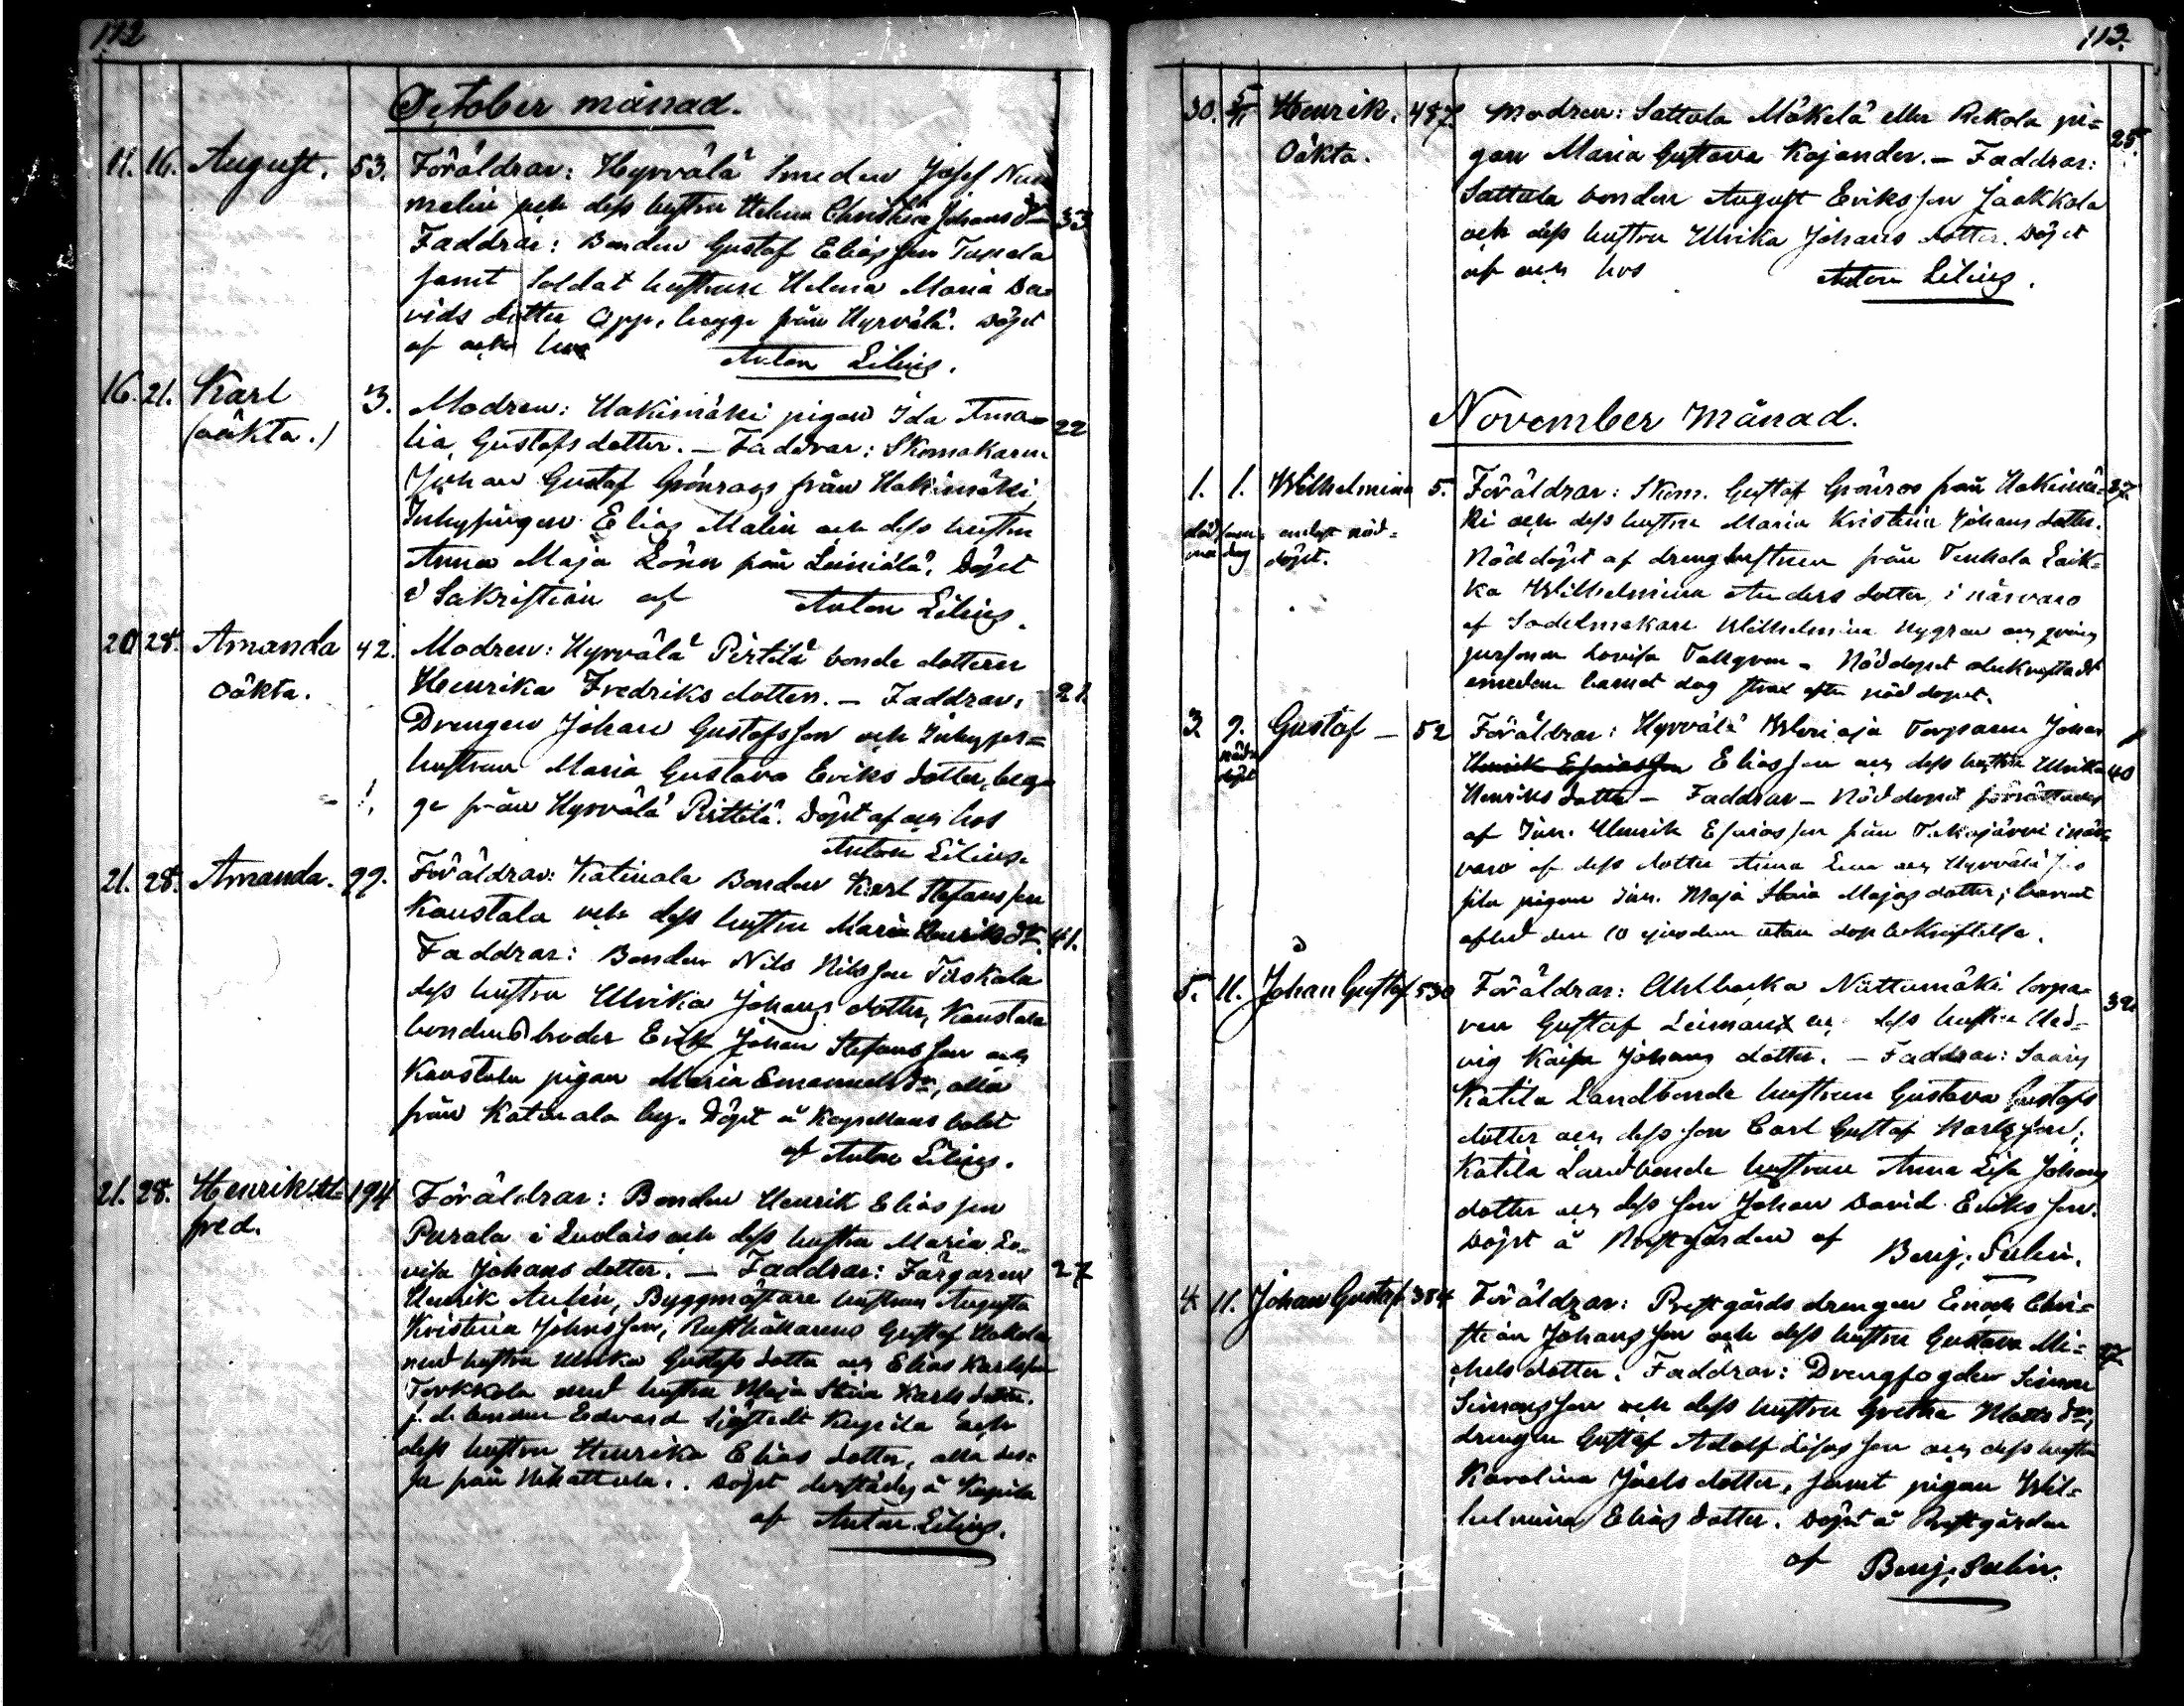 112
October månad.
11. 16. August. 53. Föräldrar: Hyrvälä Smeden Josef Num
melin och dess hustru Helena Christina Johans dr 33
Faddrar: Bonden Gustaf Eliasson
samt Soldat hustrun Helena Maria Da=
vids dotter Opp, begge från Hyrvälä. Döpt
af och hos Anton Lilius.
16. 21. Karl 3. Modren: Hakimäki pigan Ida Ama=
(oäkta.) lia Gustafsdotter. — Faddrar: Skomakaren 22
Johan Gustaf Grönroos från Hakimäki
Inhysingen Elias Malin och dess hustru
Anna Maja Lönn från Leiniälä. Döpt
i Sakristian af Anton Lilius.
20 28. Amanda 42. Modren: Hyrvälä Pirtilä bonde dottern
oäkta. Henrika Fredriks dotter. — Faddrar: 21.
Drengen Johan Gustafsson och Inhyses=
hustrun Maria Gustava Eriks dotter, beg=
ge från Hyrvälä Pirttilä. Döpt af och hos
Anton Lilius.
21. 28. Amanda. 99. Föräldrar: Katinala Bonden Karl Stefansson
Kaustala och dess hustru Maria Henriksdr. 41.
Faddrar: Bonden Nils Nilsson Tuskala
dess hustru Ulrika Johans dotter, Kaustala
bondens broder Erik Johan Stefansson och
Kaustala pigan Maria Emanuelsdr, alla
från Katinala by. Döpt å Kapellans bolet
af Anton Lilius.
21. 28. Henrik Al= 194 Föräldrar: Bonden Henrik Eliasson
fred. Parola i Luolais och dess hustru Maria Lo=
visa Johans dotter. — Faddrar: Färgaren 27
Henrik Aulin, Byggmästare hustrun Augusta
Kristina Johnsson, Rusthållarens Gustaf Hakola
med hustru Ulrika Gustafs dotter och Elias Karlsson
Torkkola med hustru Maja Stina Karls dotter.
f. d. bonden Edvard Sjöstedt Kupila och
dess hustru Henrika Elias dotter, alla des=
sa från Nihattula. Döpt derstädes å Kupila
af Anton Lilius.
113.
30. 5/11 Henrik. 487. Modren: Sattula Mäkelä eller Rekola pi=
Oäkta. gan Maria Gustava Kajander. — Faddrar: 25.
Sattula bonden August Eriksson Jaakkola
och dess hustru Ulrika Johans dotter. Döpt
af och hos Anton Lilius.
November Månad.
1. 1. Wilhelmina 5. Föräldrar: Skom. Gustaf Grönroos från Hakimä= 37.
död samma dag endast nöd= ki och dess hustru Maria Kristina Johans dotter.
döpt. Nöddöpt af dreng hustrun från Tenhola Erik=
ka Wilhelmina Anders dotter, i närvaro
af Sadelmakare Wilhelmina Nygren och
personen Lovisa Tallgren. Nöddopet obekräftadt
emedan barnet dog strax efter nöddopet.
3. 9. Gustaf — 52 Föräldrar: Hyrvälä Torparen Johan
nöd döpt Henrik Esaiasson Eliasson och dess hustru Ulrika 40
Henriks dotter — Faddrar — Nöddopet förrättades
af Inh. Henrik Esaiasson från Takajärvi i när=
varo af dess dotter Anna Lena och Hyrvälä
pigan Inh. Maja Stina Majas dotter; barnet
afled den 10 ejusdem utan dop bekräftelse.
5. 11. Johan Gustaf 530 Föräldrar: Ahlbacka Niittumäki torpa=
ren Gustaf Leiman och dess hustru Hed= 39.
vig Kaisa Johans dotter. — Faddrar: Saaris
Katila Landbonde hustrun Gustava Gustafs
dotter och dess son Carl Gustaf Karlsson,
Katila Landbonde hustrun Anna Lisa Johans
dotter och dess son Johan David Eriksson.
Döpt å Prestgården af Benj. Salin.
4. 11. Johan Gustaf 384 Föräldrar: Prestgårds drengen Enok Chri=
stian Johansson och dess hustru Gustava Mi=
chels dotter. Faddrar: Drengfogden Simon 27.
Simonsson och dess hustru Gretha Mattsdr,
drengen Gustaf Adolf och dess hustru
Karolina Joels dotter, samt pigan Wil=
helmina Elias dotter. Döpt å Prestgården
af Benj. Salin.